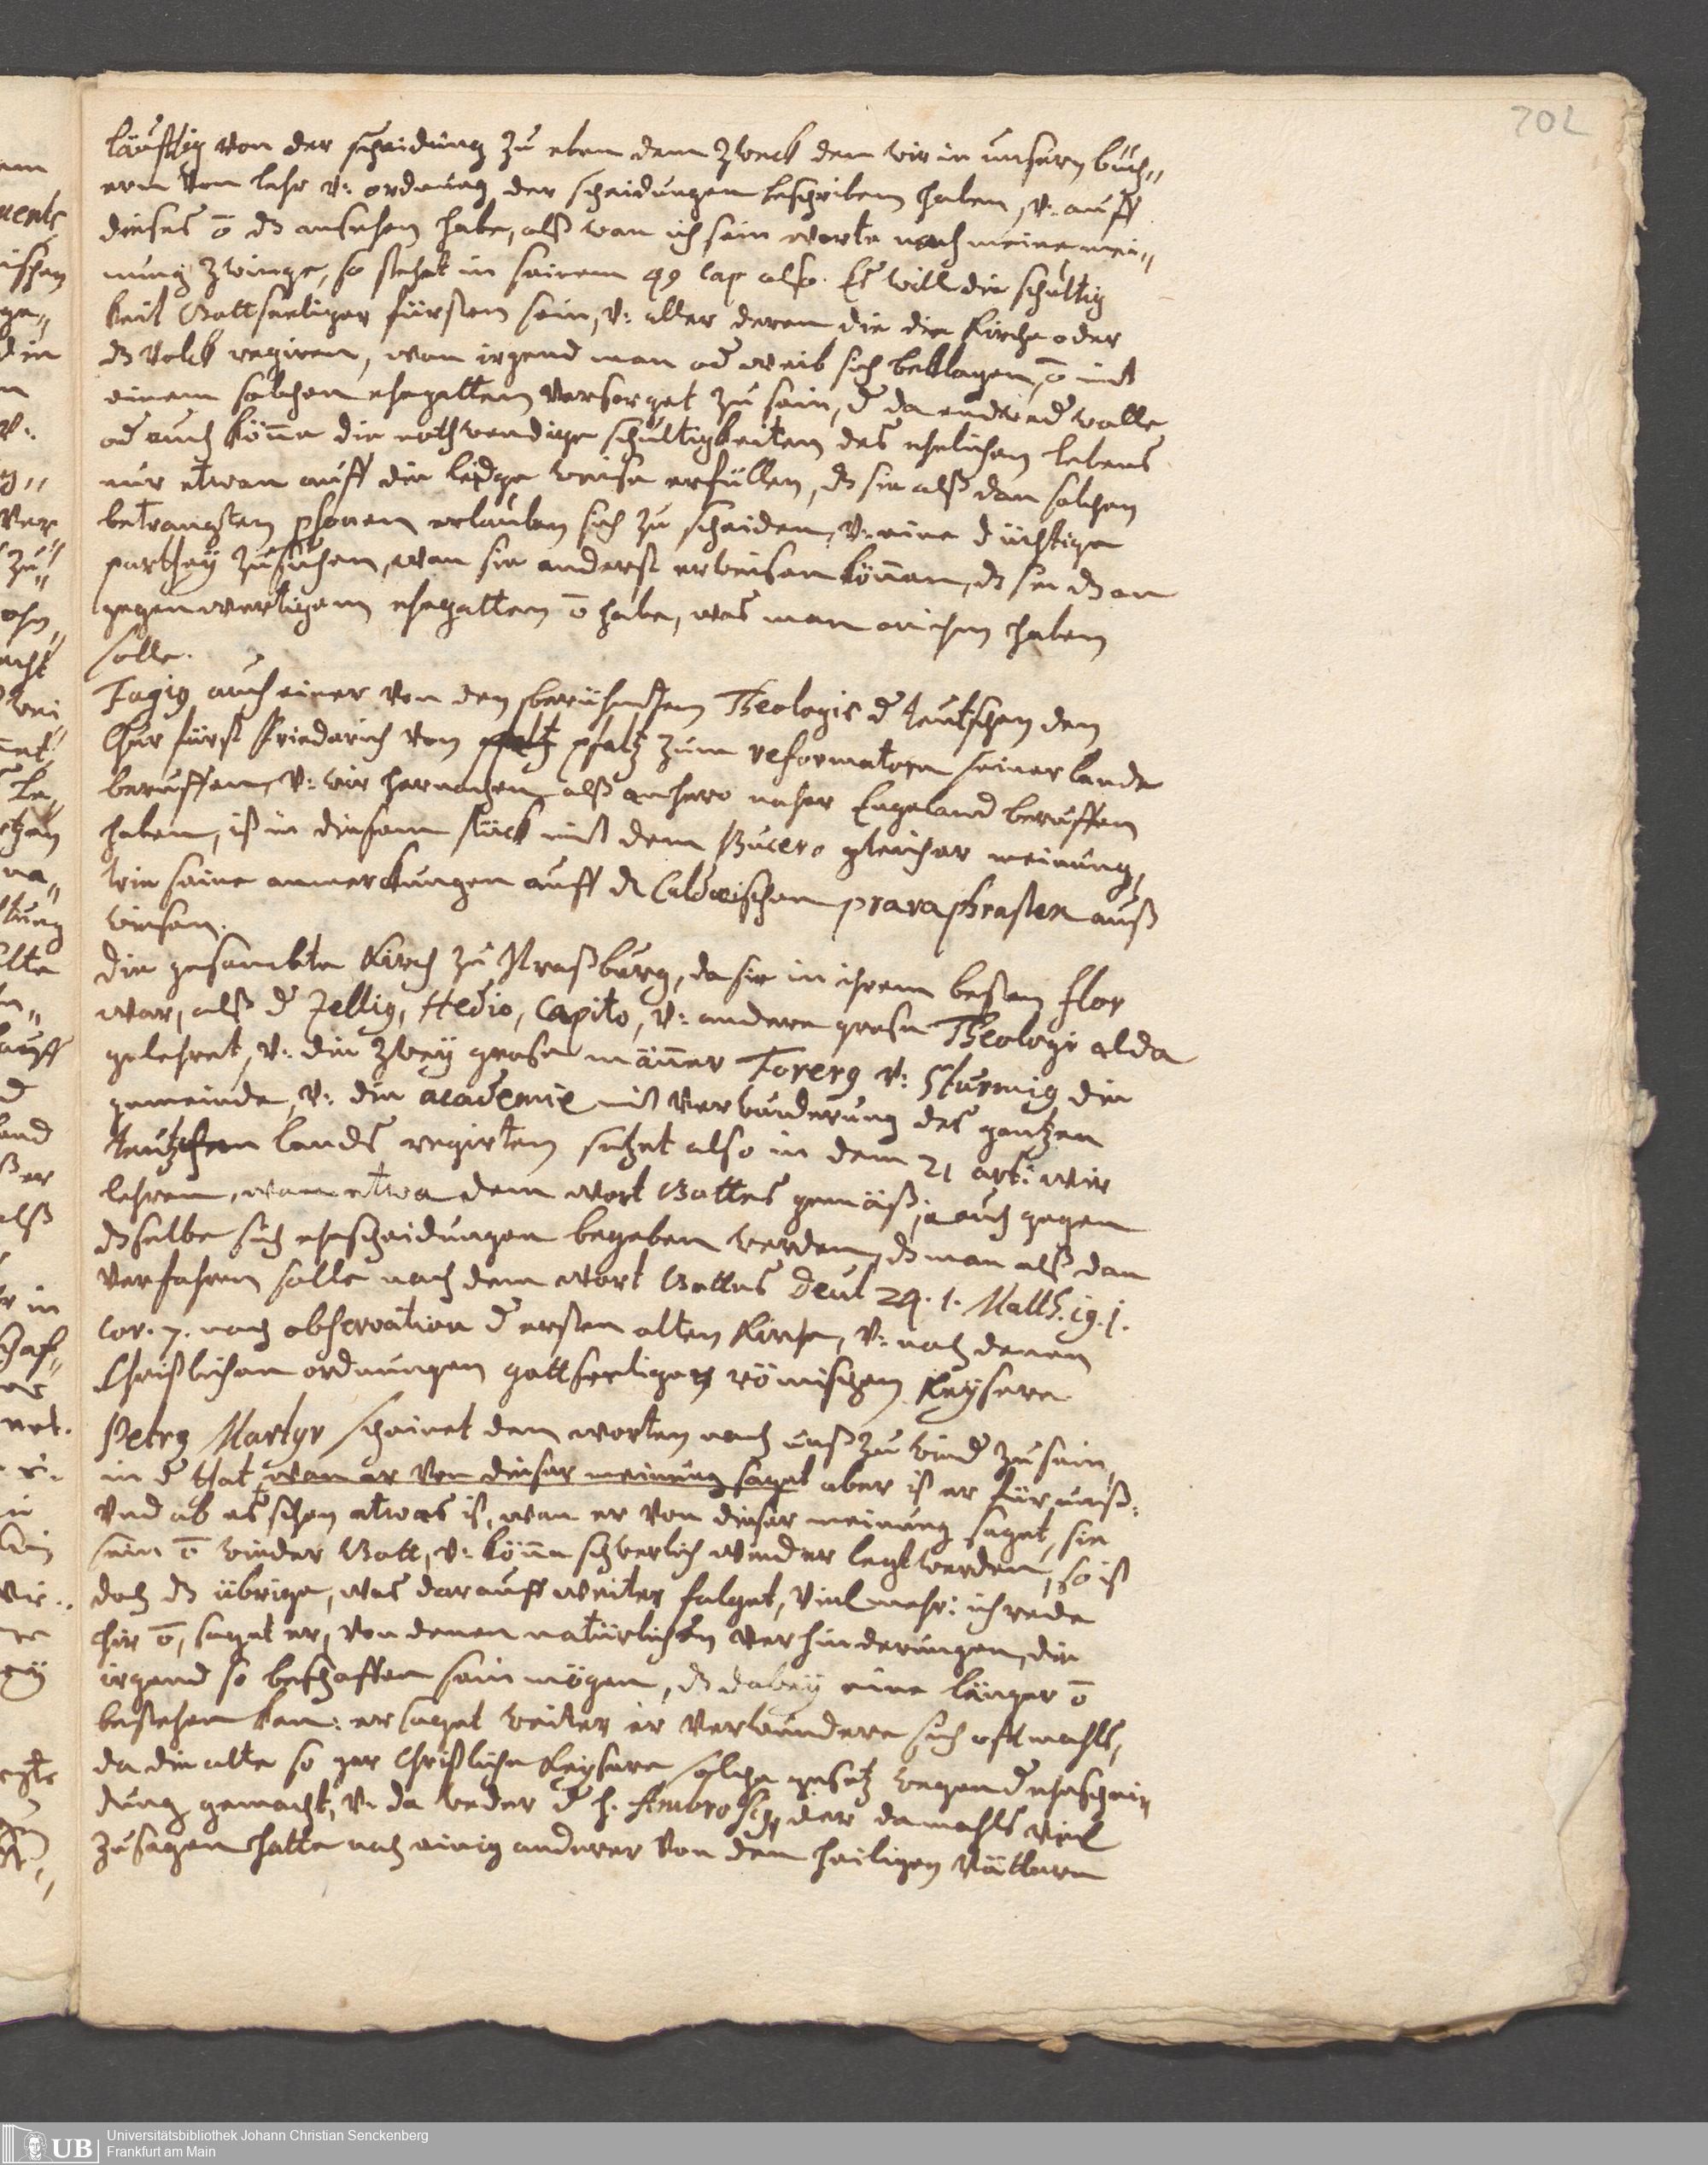 702
läufftig von der scheidung zu eben dem zweck den wir in unsern büch„
ern von lehr v: ordnung der scheidungen beschriben haben, v: auff
dieses o̅ dz ansehen habe, alß wan ich sein worte nach meine mei„
nung zwinge, so stehet in seinem 49 cap also. Es will die schultig
keit Gottseeliger fürsten sein, v: aller deren die die Kirche oder
dz Volck regiren, wan irgend man od weib sich beklagen, o̅ mit
einem solchen ehegatten versorget zu sein, d da entwed wolle
od auch könne die nothwendige schultigkeiten des ehelichen lebens
nur etwan auff die leidge weise erfüllen, dz sie alß dan solchen
betrangten psonen erlauben sich zu scheiden, v: eine düchtige
parthey zu suchen, wan sie anderst erweisen können, dz sie dz an
gegenwertigem ehegatten o̅ habe, was man an ihm haben
solle.
Fagi9 auch einer von den berühmsten Theologis d teutschen den
Chur fürst Friederich von pfaltz pfaltz zum reformatorn seiner lande
beruffen, v: wir hernachen alß anhero naher Engeland beruffen
haben, ist in diesem stück mit dem Bucero gleicher meinung,
wie seine anmerckungen auff d Caldæischen praraphrasten auß
weisen.
Die gesambte Kirch zu Straßburg, da sie in ihrem besten flor
war, alß d Zelli9, Hedio, Capito, v: andere grose Theologi alda
gelehret, v: die zwey grose männer Forer9 v: Sturmi9 die
gemeinde, v: die academie mit verwunderung des gantzen
teutschen lands regirten setzet also in dem 21 art: wir
lehren, wan etwa dem wort Gottes gemäß, auch gegen
dzselbe sich ehescheidungen begeben werden, dz man alß dan
verfahren solle nach dem wort Gottes Deut 24. 1. Matth. 19. 1.
Cor. 7. nach observation d ersten alten Kirche, v: nach denen
Christlichen ordnungen gottseeliger römischen Keysern
Petr9 Martyr scheinet den worten nach unß zu wied zu sein,
in d that wan er von dieser meinung saget aber ist er für unß:
Und ob es schon etwas ist, wan er von dieser meinung saget, sie
seie o̅ wieder Gott, v: könne schwerlich wieder legt werden, so ist
doch dz übrige, was darauff weiter folget, viel mehr: ich rede
hir o̅, saget er, von denen natürlichen verhinderungen, die
irgend so beschaffen sein mögen, dz dabey eine länger o̅
bestehen kan: er saget weiter er verwundere sich oftmahls,
da die alte so gar Christliche Keysere solche gesetz wegen d ehschei„
dung gemacht, v: da weder d h. Ambrosi9, der damahls viel
zu sagen hatte noch einig anderer von den heiligen Vättern
Universitätsbibliothek Johann Christian Senckenberg
Frankfurt am Main
UB